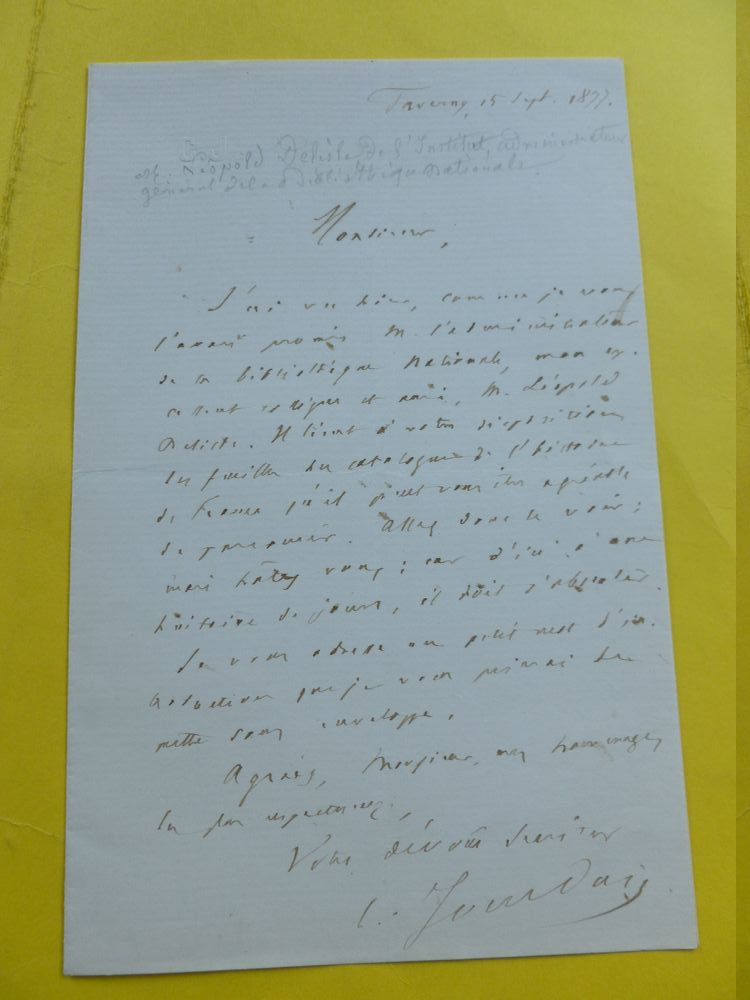 Taverny, 15 Sept. 1877.
M. Léopold Delisle de l'Institut, administrateur
général de la Bibliothèque nationale
Monsieur,
J'ai vu hier, comme je vous
l'avais promis M. l'administrateur
de la bibliothèque Nationale, mon ex-
cellent collègue et ami, M. Léopold
Delisle. Il tient à votre disposition
les feuilles du catalogue de l'histoire
de France qu'il peut vous être agréable
de parcourir. Allez donc le voir ;
mais hâtez vous ; car d'ici à une
huitaine de jours, il doit s'absenter.
Je vous adresse un petit mot d'in-
troduction que je vous prierai de
mettre sous enveloppe.
Agréez, Monsieur, mes hommages
les plus respectueux,
Votre dévoué serviteur
C. Jourdain